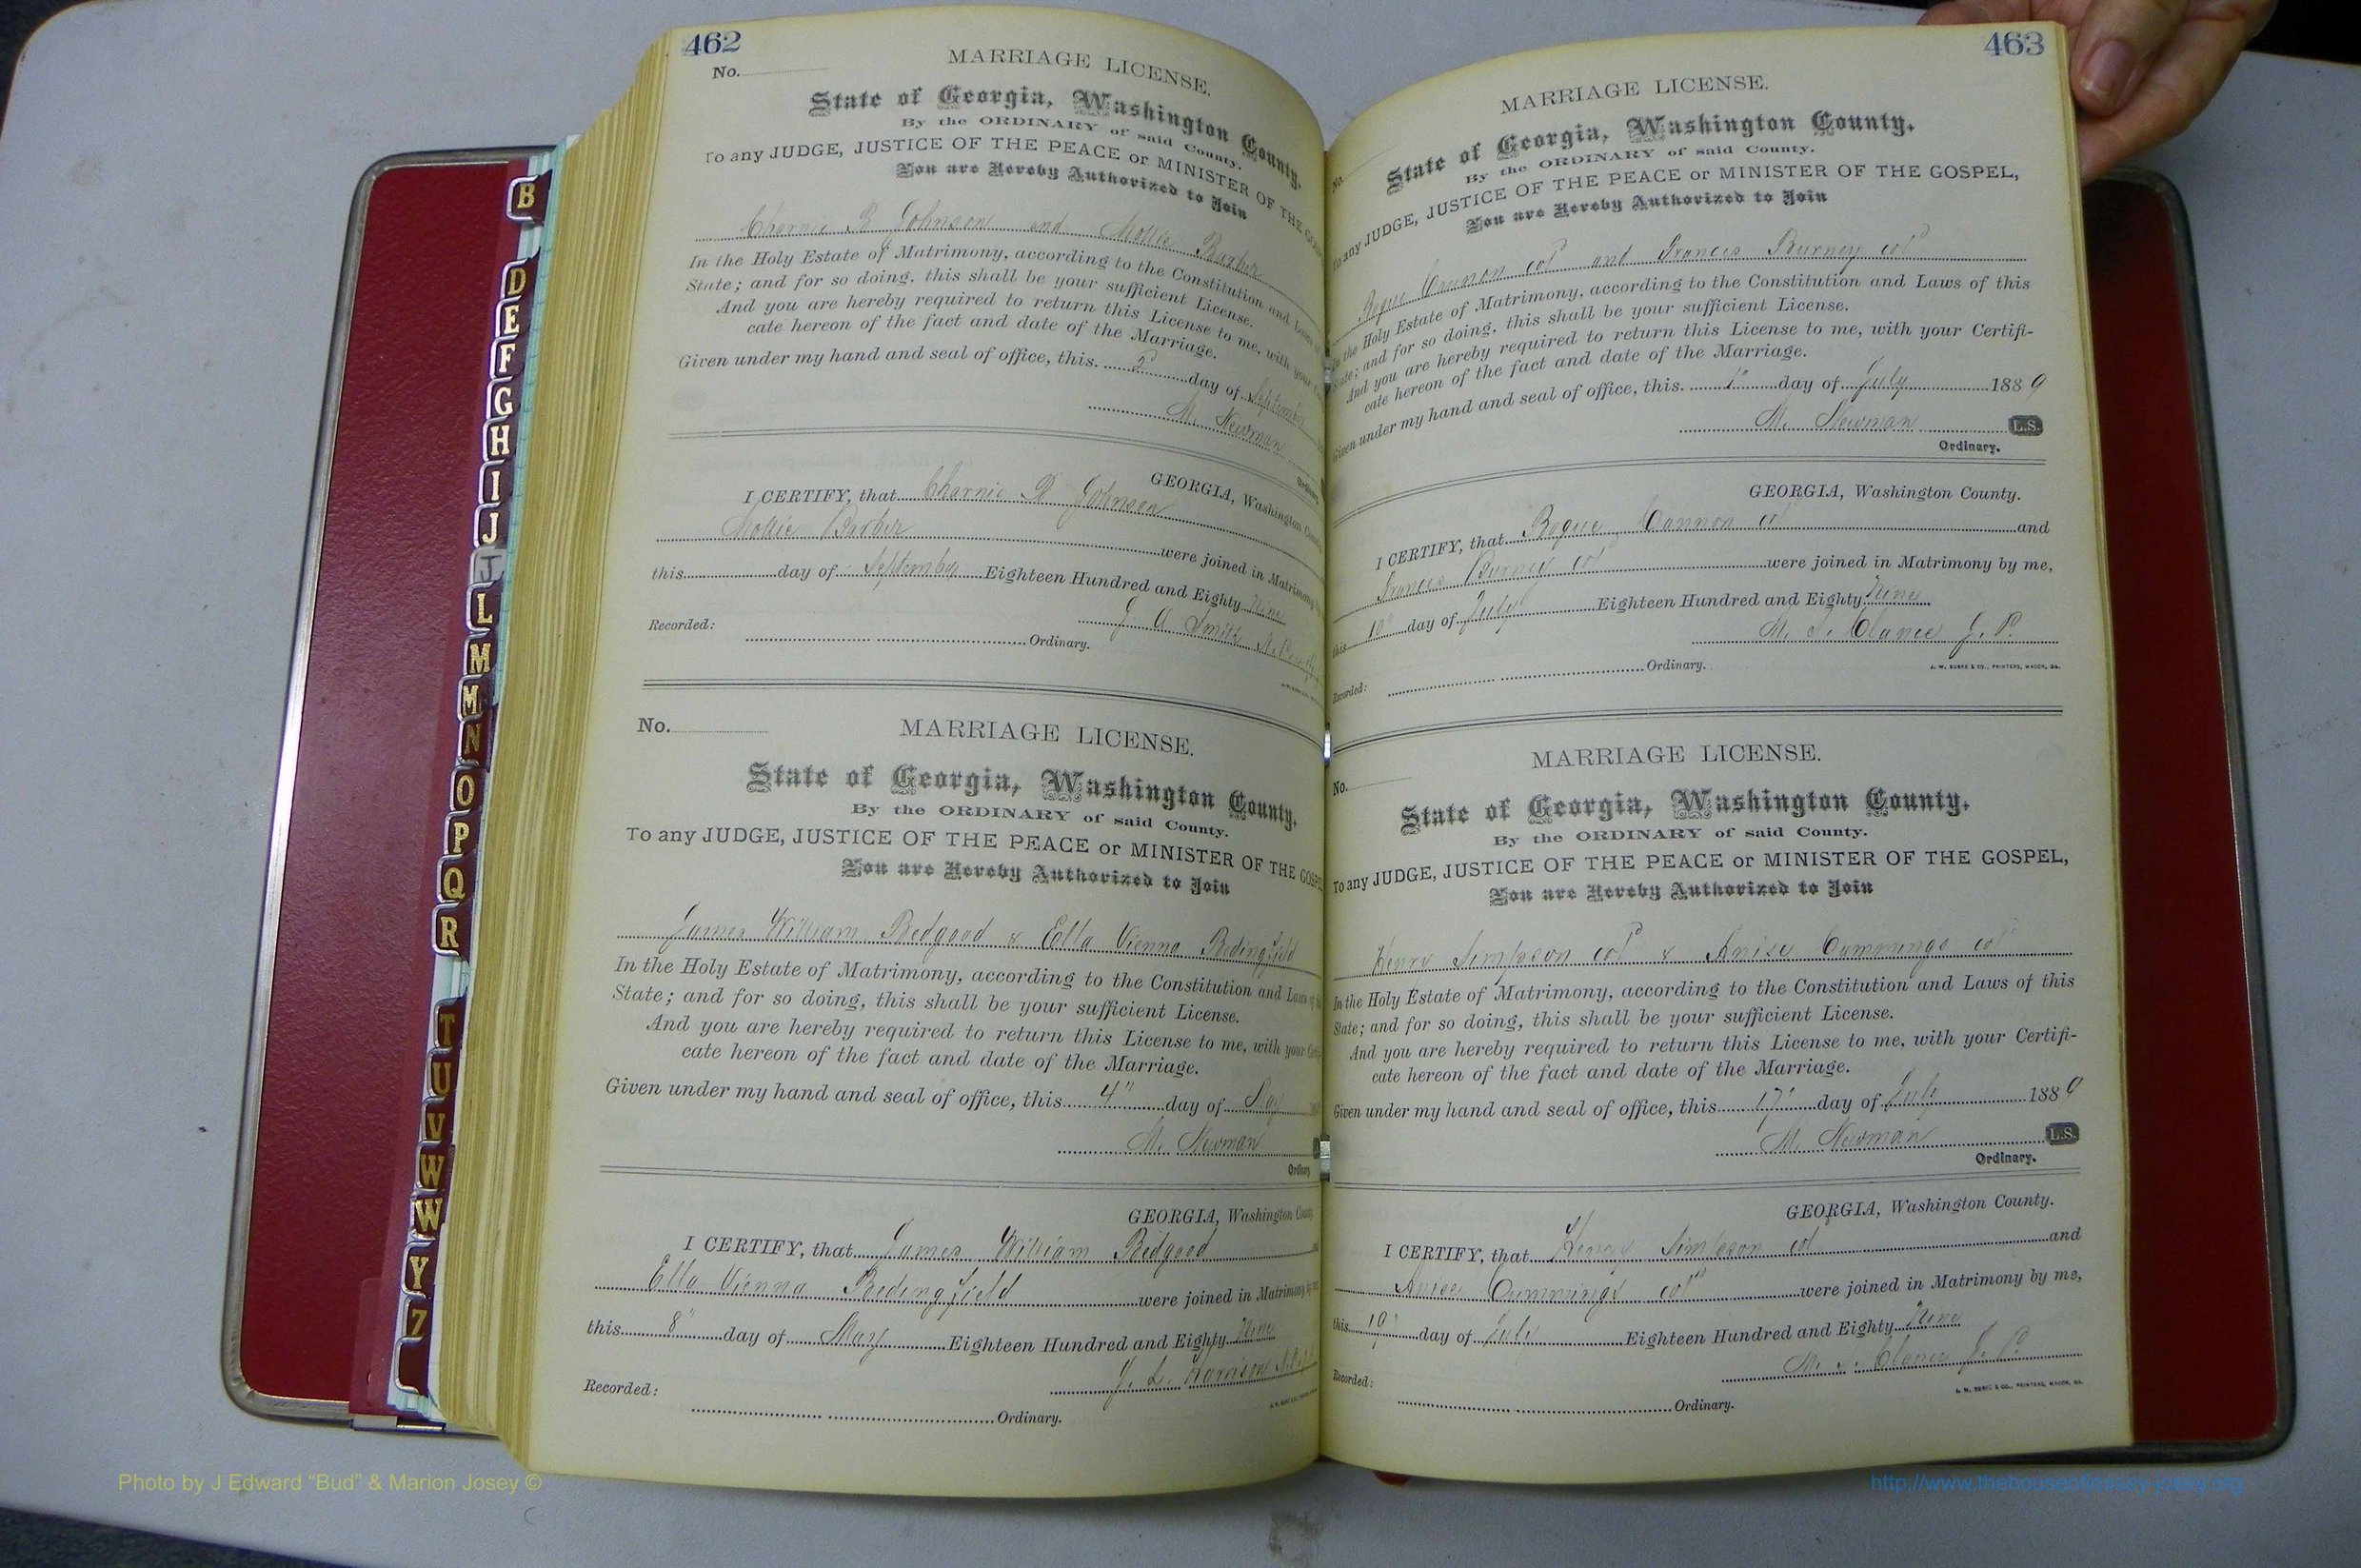 462
No.
MARRIAGE LICENSE.
State of Georgia, Washington County.
By the ORDINARY of said County.
To any JUDGE, JUSTICE OF THE PEACE or MINISTER OF THE
You are Hereby Authorized to Join
Charnie R Johnson and Mollie Barber
In the Holy Estate of Matrimony, according to the Constitution and Laws
State; and for so doing, this shall be your sufficient License.
And you are hereby required to return this License to me, with your
cate hereon of the fact and date of the Marriage.
Given under my hand and seal of office, this 2 day of September
M. Newman
Ordinary.
GEORGIA, Washington County
I CERTIFY, that Charnie R Johnson
Mollie Barber were joined in Matrimony
this day of September Eighteen Hundred and Eighty Nine
J. A. Smith
Recorded: Ordinary.
No.
MARRIAGE LICENSE.
State of Georgia, Washington County.
By the ORDINARY of said County.
To any JUDGE, JUSTICE OF THE PEACE or MINISTER OF THE GOSPEL
You are Hereby Authorized to Join
James William Bedgood & Ella Vienna Bedingfield
In the Holy Estate of Matrimony, according to the Constitution and Laws of
State; and for so doing, this shall be your sufficient License.
And you are hereby required to return this License to me, with your
cate hereon of the fact and date of the Marriage.
Given under my hand and seal of office, this 4" day of May
M. Newman
Ordinary
GEORGIA, Washington County
I CERTIFY, that James William Bedgood
Ella Vienna Bedingfield were joined in Matrimony by
this 8" day of May Eighteen Hundred and Eighty Nine
J. L. Harrison
Recorded: Ordinary.
463
No.
MARRIAGE LICENSE.
State of Georgia, Washington County.
By the ORDINARY of said County.
To any JUDGE, JUSTICE OF THE PEACE or MINISTER OF THE GOSPEL,
You are Hereby Authorized to Join
Bogue Cannon col and Frances Burney col
In the Holy Estate of Matrimony, according to the Constitution and Laws of this
State; and for so doing, this shall be your sufficient License.
And you are hereby required to return this License to me, with your Certifi-
cate hereon of the fact and date of the Marriage.
Given under my hand and seal of office, this 1" day of July 1889
M. Newman L.S.
Ordinary.
GEORGIA, Washington County.
I CERTIFY, that Bogue Cannon col and
Frances Burney col were joined in Matrimony by me,
this 10" day of July Eighteen Hundred and Eighty Nine
M. S. Chance J. P.
Recorded: Ordinary.
J. W. BURKE & CO., PRINTERS, MACON, GA.
MARRIAGE LICENSE.
No.
State of Georgia, Washington County.
By the ORDINARY of said County.
To any JUDGE, JUSTICE OF THE PEACE or MINISTER OF THE GOSPEL,
You are Hereby Authorized to Join
Henry Simpson col & Anise Cummings col
In the Holy Estate of Matrimony, according to the Constitution and Laws of this
State; and for so doing, this shall be your sufficient License.
And you are hereby required to return this License to me, with your Certifi-
cate hereon of the fact and date of the Marriage.
Given under my hand and seal of office, this 17" day of July 1889
M. Newman L.S.
Ordinary.
GEORGIA, Washington County.
I CERTIFY, that Henry Simpson col and
Anise Cummings col were joined in Matrimony by me,
this day of July Eighteen Hundred and Eighty Nine
M. S. Chance J. P.
Recorded: Ordinary.
J. W. BURKE & CO., PRINTERS, MACON, GA.
B
D
E
F
G
H
I
J
J
L
M
M
N
O
P
Q
R
T
U
V
W
W
Y
Z
Photo by J Edward “Bud” & Marion Josey ©